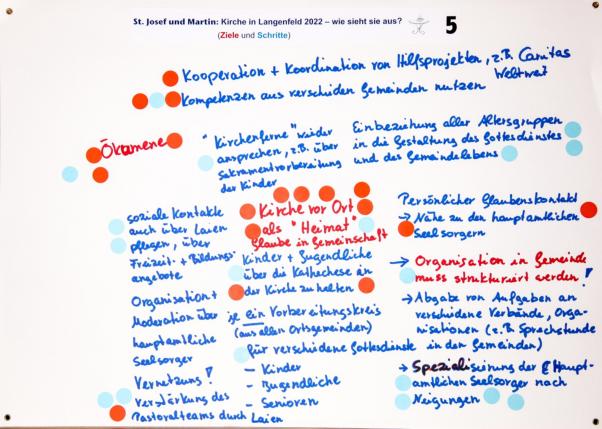 St. Josef und Martin: Kirche in Langenfeld 2022 – wie sieht sie aus?
(Ziele und Schritte)
5
Kooperation + Koordination von Hilfsprojekten, z.B. Caritas
Weltweit
Kompetenzen aus verschiden Gemeinden nutzen
Ökumene
"Kirchenferne" wieder
ansprechen, z.B. über
Sakramentvorbereitung
der Kinder
Einbeziehung aller Altersgruppen
in die Gestaltung des Gottesdienstes
und des Gemeindelebens
soziale Kontakte
auch über Laien
pflegen, über
Freizeit- + Bildungs-
angebote
Kirche vor Ort
als "Heimat"
Glaube in Gemeinschaft
Persönlicher Glaubenskontakt
→ Nähe zu den hauptamtlichen
Seelsorgern
Kinder + Jugendliche
über die Kathechese in
der Kirche zu halten
→ Organisation in Gemeinde
muss strukturiert werden!
Organisation +
Moderation über
hauptamtliche
Seelsorger
je ein Vorbereitungskreis
(aus allen Ortsgemeinden)
für verschidene Gottesdienste
- Kinder
- Jugendliche
- Senioren
→ Abgabe von Aufgaben an
verschidene Verbände, Orga-
nisationen (z.B. Sprechstunde
in den Gemeinden)
Vernetzung!
Verstärkung des
Pastoralteams durch Laien
→ Spezialisierung der Haupt-
amtlichen Seelsorger nach
Neigungen